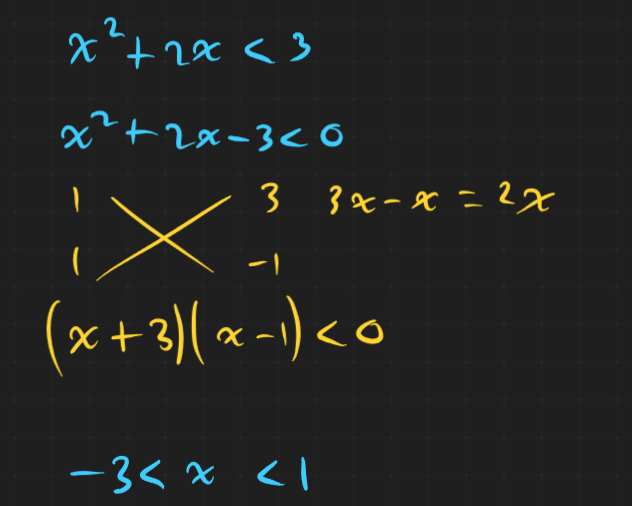 x² + 2x < 3
x² + 2x - 3 < 0
1 3 3x - x = 2x
1 -1
(x + 3)(x - 1) < 0
-3 < x < 1